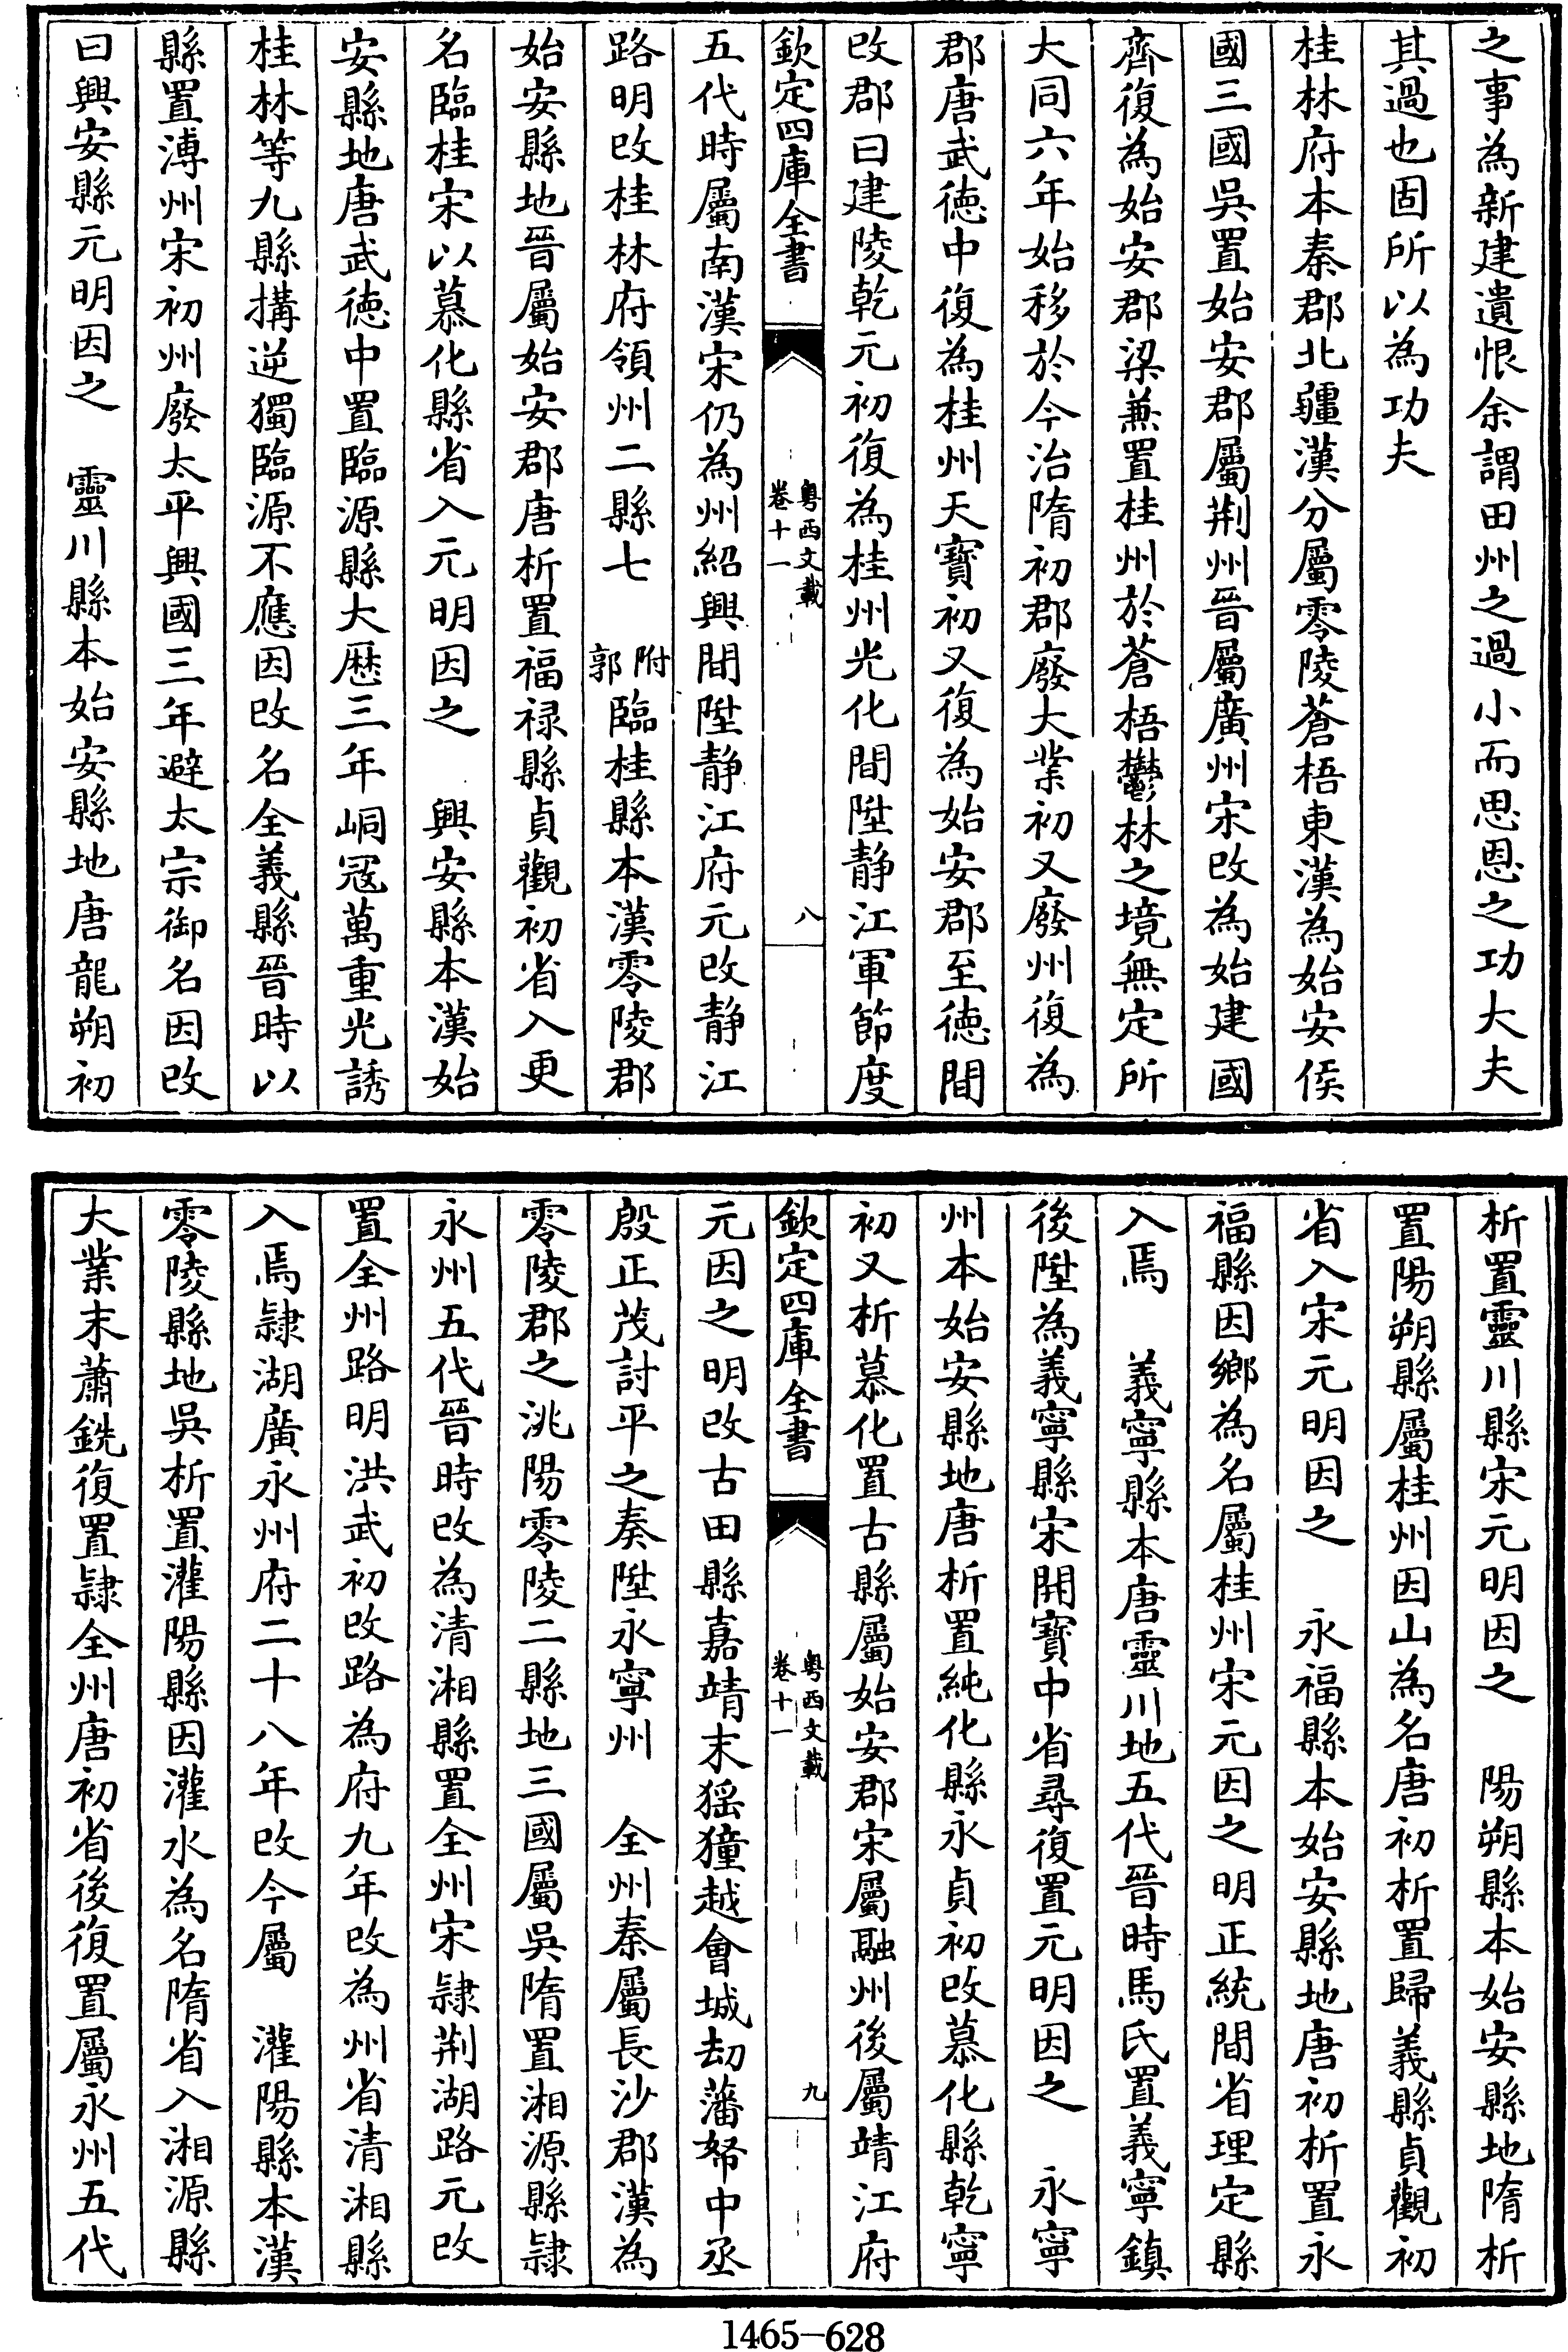 之事為新建遺恨余謂田州之過小而思恩之功大夫
其過也固所以為功夫
桂林府本秦郡北疆漢分屬零陵蒼梧東漢為始安侯
國三國吳置始安郡屬荆州晉屬廣州宋改為始建國
齊復為始安郡梁兼置桂州於蒼梧鬱林之境無定所
大同六年始移於今治隋初郡廢大業初又廢州復為
郡唐武徳中復為桂州天寳初又復為始安郡至徳間
改郡曰建陵乾元初復為桂州光化間陞静江軍節度
欽定四庫全書
粤西文載
卷十一
八
五代時屬南漢宋仍為州紹興間陞静江府元改静江
路明改桂林府領州二縣七 附郭臨桂縣本漢零陵郡
始安縣地晉屬始安郡唐析置福禄縣貞觀初省入更
名臨桂宋以慕化縣省入元明因之 興安縣本漢始
安縣地唐武徳中置臨源縣大厯三年峒冦萬重光誘
桂林等九縣搆逆獨臨源不應因改名全義縣晉時以
縣置溥州宋初州廢太平興國三年避太宗御名因改
曰興安縣元明因之 靈川縣本始安縣地唐龍朔初
析置靈川縣宋元明因之 陽朔縣本始安縣地隋析
置陽朔縣屬桂州因山為名唐初析置歸義縣貞觀初
省入宋元明因之 永福縣本始安縣地唐初析置永
福縣因鄉為名屬桂州宋元因之明正統間省理定縣
入焉 義寧縣本唐靈川地五代晉時馬氏置義寧鎮
後陞為義寧縣宋開寳中省尋復置元明因之 永寧
州本始安縣地唐析置純化縣永貞初改慕化縣乾寧
初又析慕化置古縣屬始安郡宋屬融州後屬靖江府
欽定四庫全書
粤西文載
卷十一
九
元因之明改古田縣嘉靖末猺獞越會城刼藩帑中丞
殷正茂討平之奏陞永寧州 全州秦屬長沙郡漢為
零陵郡之洮陽零陵二縣地三國屬吳隋置湘源縣隷
永州五代晉時改為清湘縣置全州宋隷荆湖路元改
置全州路明洪武初改路為府九年改為州省清湘縣
入焉隷湖廣永州府二十八年改今屬 灌陽縣本漢
零陵縣地吳析置灌陽縣因灌水為名隋省入湘源縣
大業末蕭銑復置隷全州唐初省後復置屬永州五代
1465-628